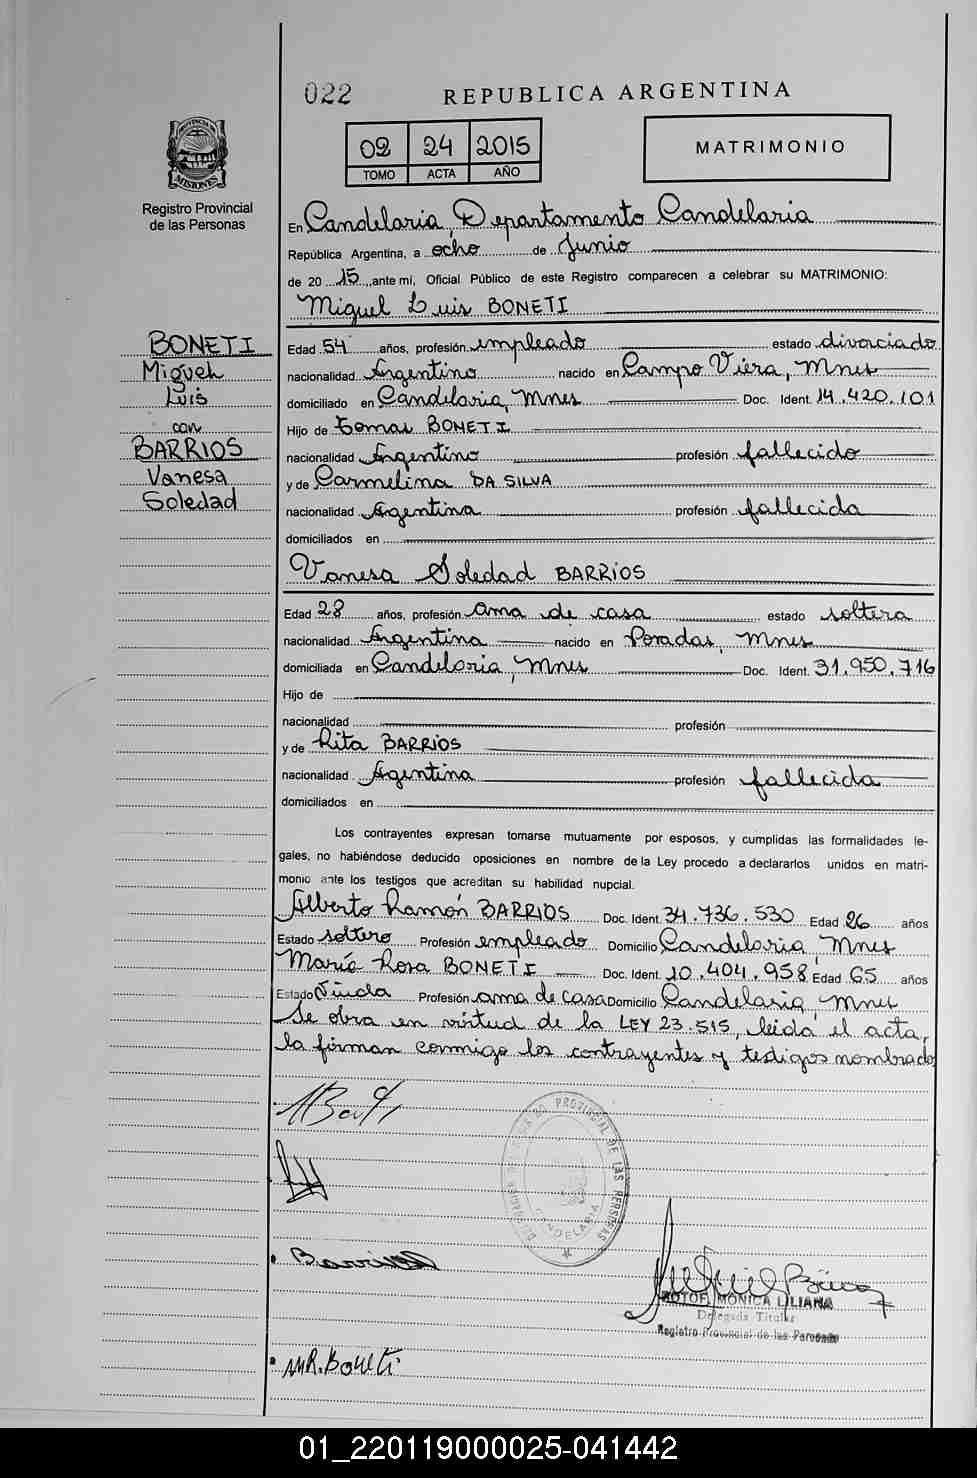 022
REPUBLICA ARGENTINA
02 24 2015
TOMO ACTA AÑO
MATRIMONIO
PROVINCIA DE
MISIONES
Registro Provincial
de las Personas
En Candelaria, Departamento Candelaria
República Argentina, a ocho de Junio
de 20 15, ante mi, Oficial Público de este Registro comparecen a celebrar su MATRIMONIO:
Miguel Luis BONETI
BONETI
Miguel
Luis
con
BARRIOS
Vanesa
Soledad
Edad 54 años, profesión empleado estado divorciado
nacionalidad Argentino nacido en Campo Viera, Mnes
domiciliado en Candelaria, Mnes Doc. Ident. 14.420.101
Hijo de Tomas BONETI
nacionalidad Argentino profesión fallecido
y de Carmelina DA SILVA
nacionalidad Argentina profesión fallecida
domiciliados en
Vanesa Soledad BARRIOS
Edad 28 años, profesión ama de casa estado soltera
nacionalidad Argentina nacido en Posadas, Mnes
domiciliada en Candelaria, Mnes Doc. Ident. 31.950.716
Hijo de
nacionalidad profesión
y de Rita BARRIOS
nacionalidad Argentina profesión fallecida
domiciliados en
Los contrayentes expresan tomarse mutuamente por esposos, y cumplidas las formalidades le-
gales, no habiéndose deducido oposiciones en nombre de la Ley procedo a declararlos unidos en matri-
monio ante los testigos que acreditan su habilidad nupcial.
Alberto Ramón BARRIOS Doc. Ident. 34.736.530 Edad 26 años
Estado soltero Profesión empleado Domicilio Candelaria, Mnes
María Rosa BONETI Doc. Ident. 10.404.958 Edad 65 años
Estado Viuda Profesión ama de casa Domicilio Candelaria, Mnes
Se obra en virtud de la LEY 23.515, leída el acta,
la firman conmigo los contrayentes y testigos nombrados
PROVINCIAL DE LAS PERSONAS
CANDELARIA
Barrios
MONICA LILIANA
Delegada Titular
Registro Provincial de las Personas
M.R. Boneti
01_220119000025-041442